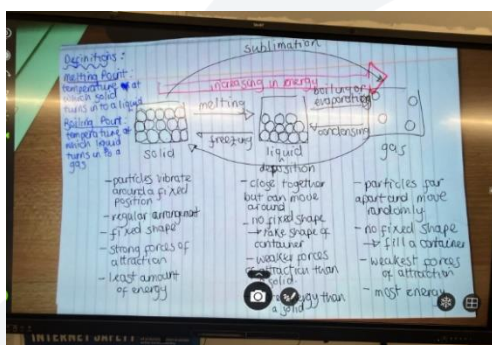 sublimation
Definitions:
Melting Point:
temperature at
which solid
turns into a liquid
Boiling Point:
temperature at
which liquid
turns in to a
gas
increasing in energy
melting
freezing
boiling or
evaporation
condensing
solid
liquid
gas
deposition
- particles vibrate
around a fixed
position
- regular arrangment
- fixed shape
- strong forces of
attraction
- least amount
of energy
- close together
but can move
around
- no fixed shape
→ take shape of
container
- weaker forces
of attraction than
solid.
energy than
a solid
- particles far
apart and move
randomly.
- no fixed shape
→ fill a container
- weakest forces
of attraction
- most energy
INTERNET SAFETY